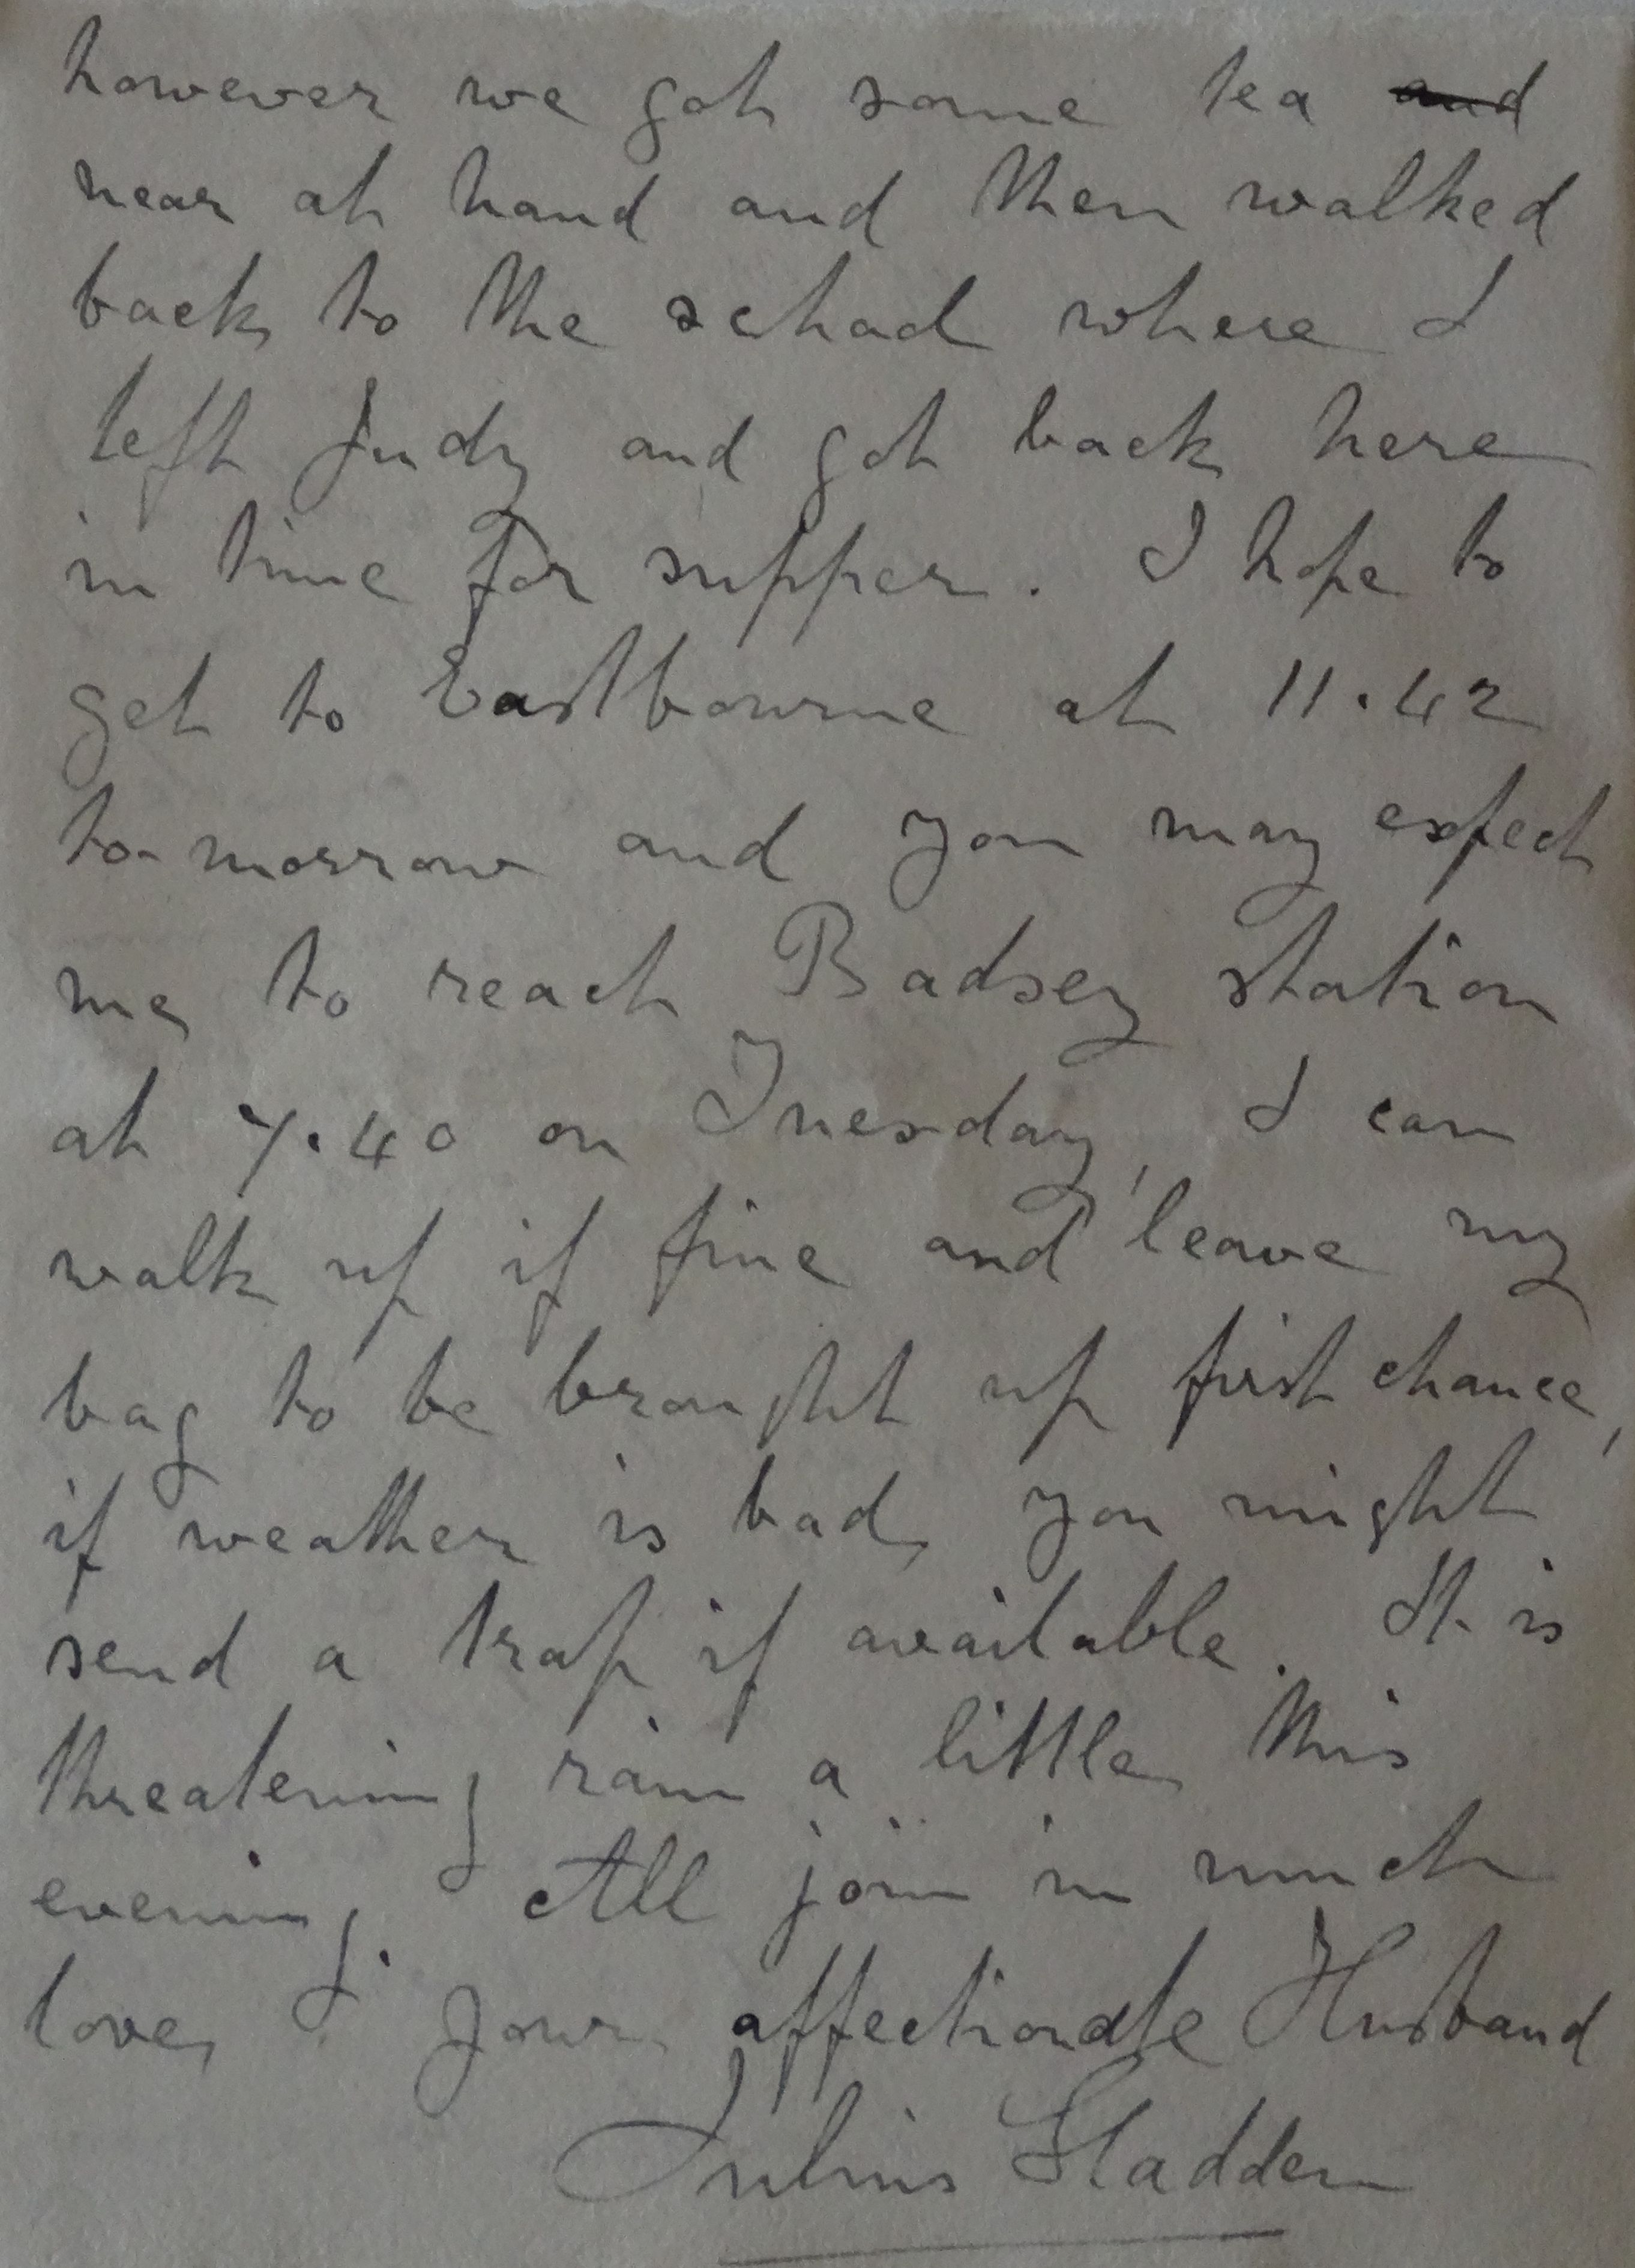 however we got some tea and
near at hand and then walked
back to the school where I
left Judy and got back here
in time for supper. I hope to
get to Eastbourne at 11.42
to-morrow and you may expect
me to reach Badsey Station
at 7.40 on Tuesday, I can
walk up if fine and leave my
bag to be brought up first chance,
if weather is bad, you might
send a trap if available. It is
threatening rain a little this
evening. All join in much
love, Your affectionate Husband
Julius Sladden